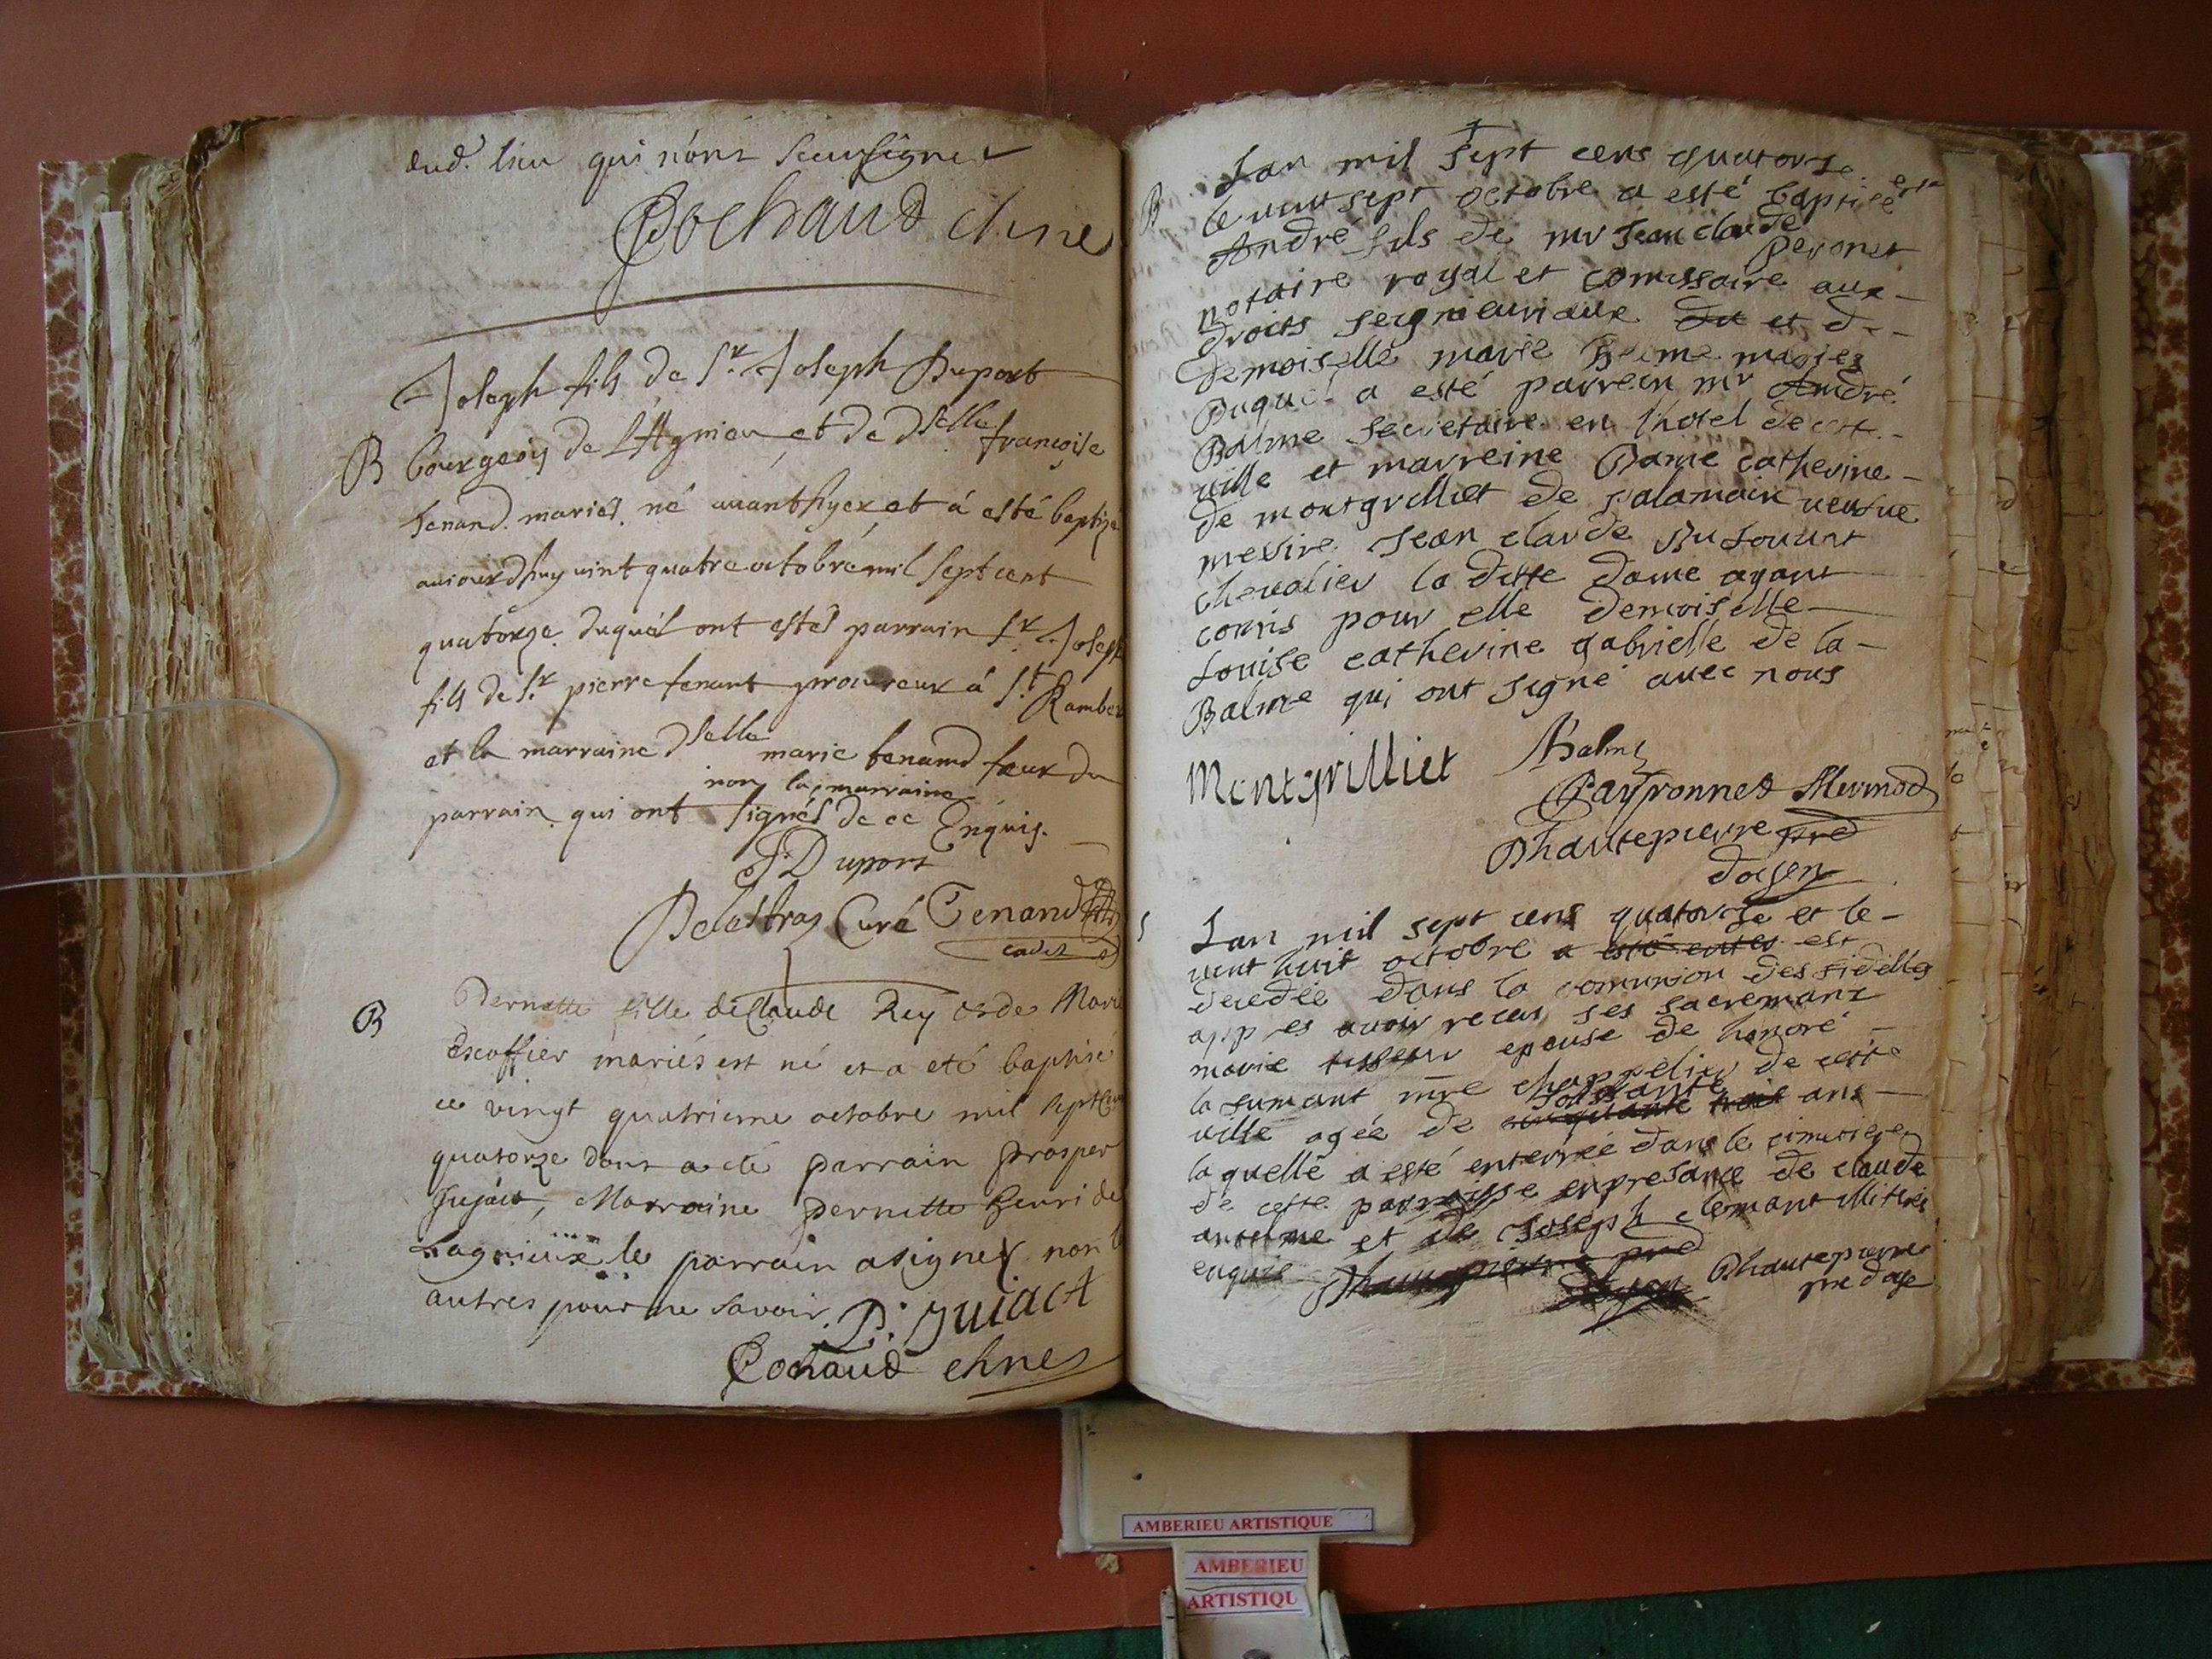 dud. lieu qui n'ont sceu signer
Cochaud chne
Joseph fils de Sr. Joseph Duport
B bourgeois de L'Agnieu et de dlselle françoise
tenand mariés né auanthyer et á esté baptizé
auiourdhuy uint quatre octobre mil sept cent
quatorze duquél ont estés parrain Sr. Joseph
fils de Sr pierre tenant procureur á St. Rambert
et la marraine dlselle marie tenand seur du
non la marraine
parrain qui ont signés de ce Enquis.
J. Duport
Delestraz Curé Tenand
cadet
B Pernette fille de Claude Rey et de Marie
Escoffier mariés est né et a eté baptisé
ce vingt quatrieme octobre mil sept cent
quatorze dont a eté parrain prosper
Jujact, Marraine pernette henri de
Lagnieux le parrain a signé non l
autres pour ne savoir. P. Jujact
Cochaud chne
Lan mil sept cens quatorse
B le uint sept octobre a esté baptisé
André fils de mr Jean claude peronet
notaire royal et comissaire aux
droits seigneuriaux du et de
demoiselle marie mariés
Duquel a esté parrein mr André
Balme secretaire en l'hotel de cette
uille et marreine Dame catherine
de montgrilliet de salamain ueufue
messire Jean claude
chevalier la ditte dame ayant
comis pour elle demoiselle
Louise catherine gabrielle de la
Balme qui ont signé auec nous
Montgrilliet Balme
Payronnet Mermod
Dhautepierre pre
doyen
S Lan mil sept cens quatorse et le
uint huit octobre a esté est
decedée dans la comunion des fidelles
appres auoir receu ses sacremant
marie epouse de honoré
la fumant mre chappelier de cette
soissante
uille agée de cinquante trois ans
la quelle a esté enterrée dans le cimetiere
de cette parroisse en presance de claude
antelme et de Joseph clemant
enquis Dhautepierre pre
doyen Dhautepierre
pre doye
AMBERIEU ARTISTIQUE
AMBERIEU
ARTISTIQU